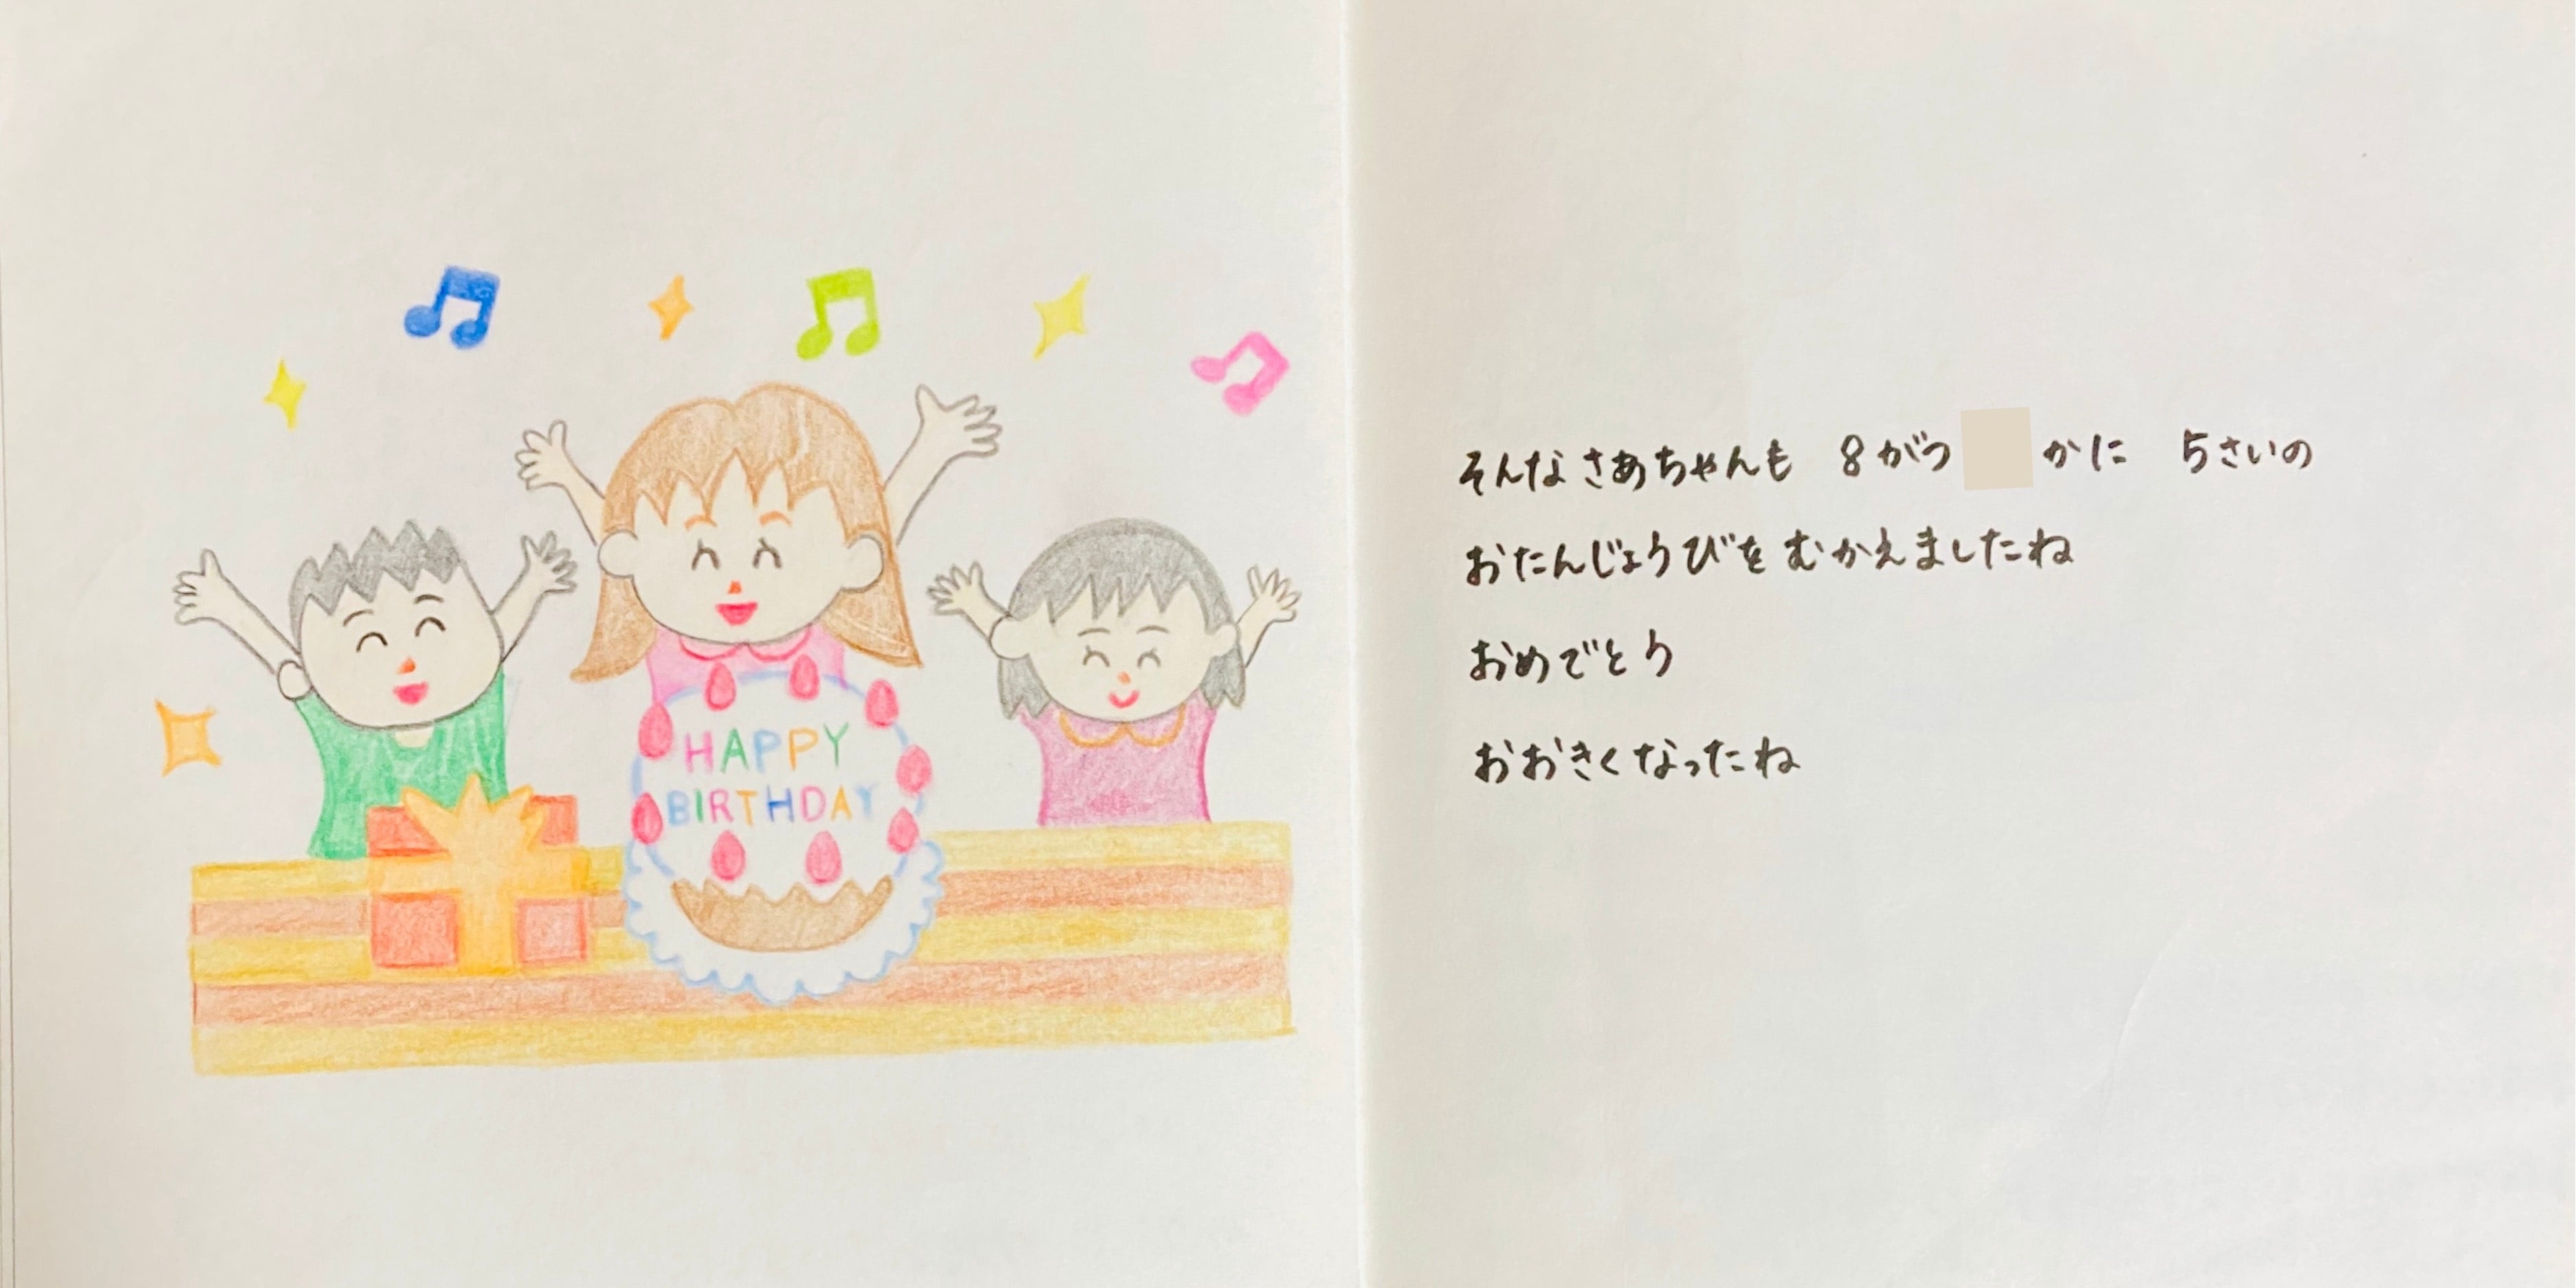 HAPPY
BIRTHDAY
そんなさあちゃんも 8がつ かに 5さいの
おたんじょうびを むかえましたね
おめでとう
おおきくなったね